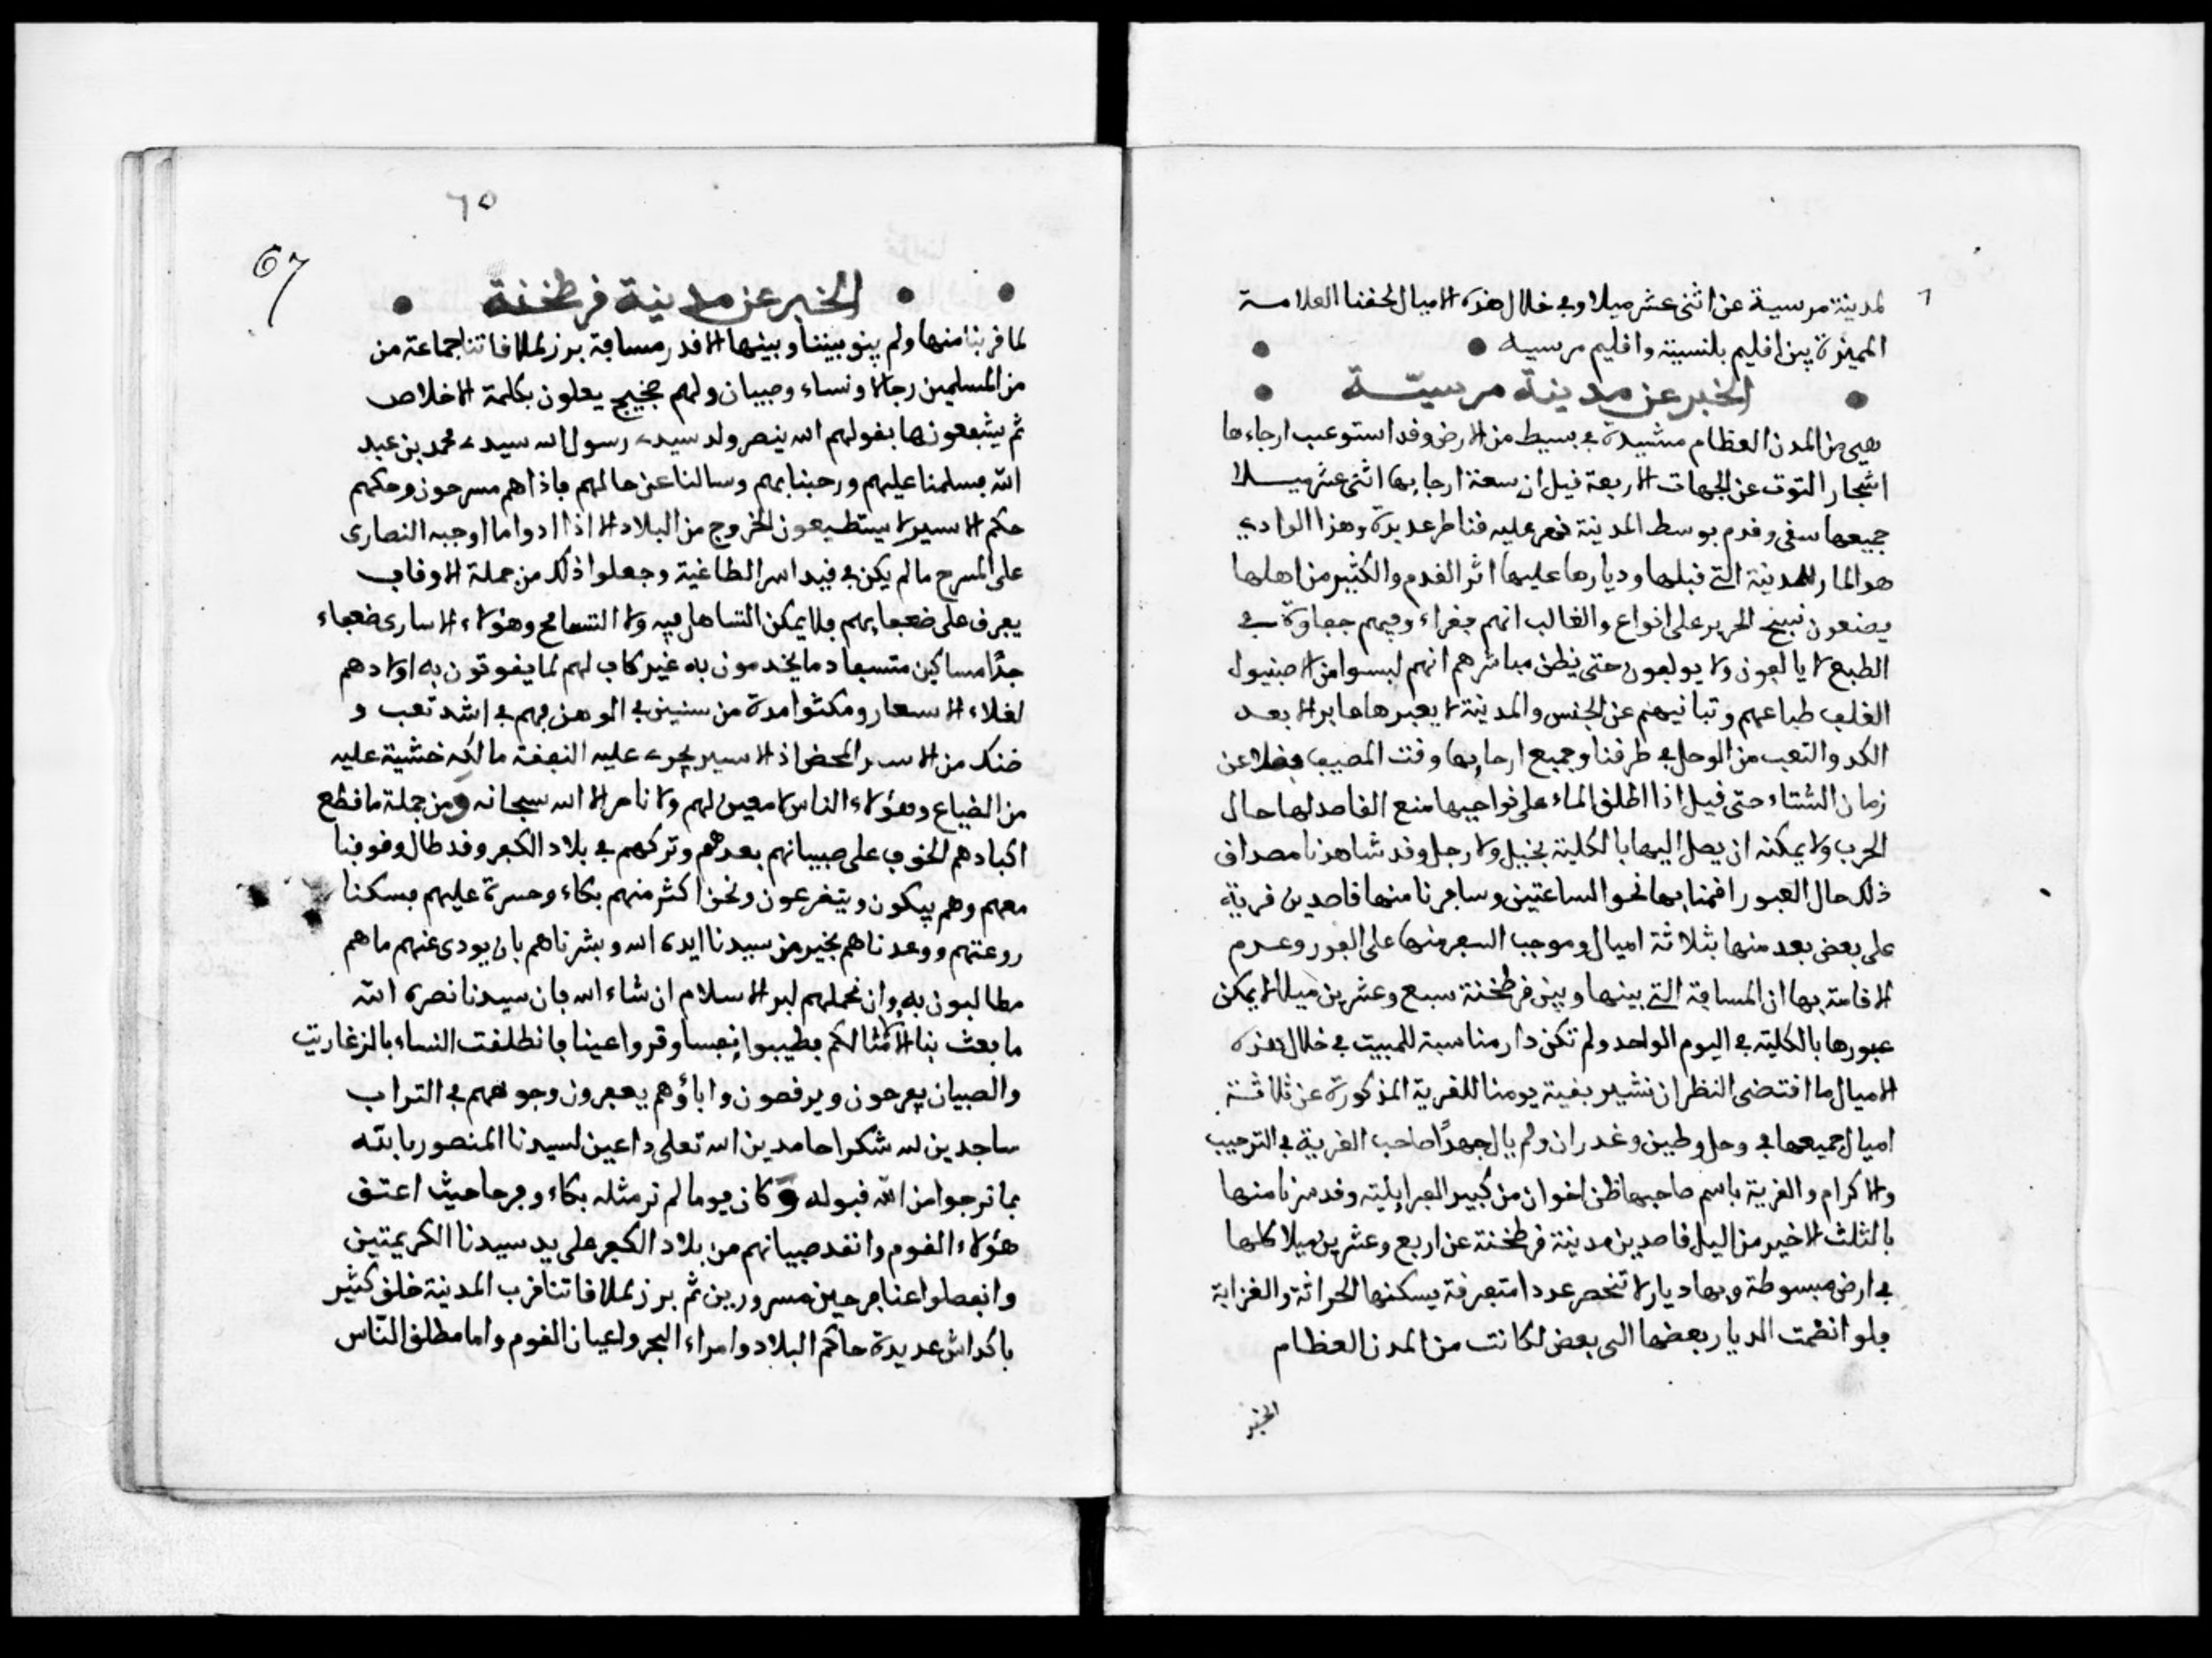 لمدينة مرسية عن اثنى عشر ميلا وفي خلال هذه الاميال لحقنا العلامة
المميزة بين اقليم بلنسية واقليم مرسية
الخبر عن مدينة مرسية
هي من المدن العظام مشيدة في بسيط من الارض وقد استوعب ارجاءها
اشجار التوت عن الجهات الاربعة قيل ان سعة ارجايها اثنى عشر ميلا
جميعها سقي وقدم بوسط المدينة نهر عليه قناطر عديدة وهذا الوادي
هو المار للمدينة التي قبلها وديارها عليها اثر القدم والكثير من اهلها
يصنعون نسيج الحرير على انواع والغالب انهم فقراء وفيهم جفاوة في
الطبع لا يالفون ولا يولفون حتى يظن مباشرهم انهم ليسوا من الاصبنيول
لقلب طباعهم وتبانيهم عن الجنس والمدينة لا يعبرها عابر الا بعد
الكد والتعب من الوحل في طرقنا وجميع ارجايها وقت المصيف فضلا عن
زمان الشتاء حتى قيل اذا اطلق الماء على نواحيها منع القاصد لها حال
الحرب ولا يمكنه ان يصل اليها بالكلية بخيل ولا رجل وقد شاهدنا مصداق
ذلك حال العبور اقمنا بها نحو الساعتين وسافرنا منها قاصدين قرية
على بعض بعد منها بثلاثة اميال وموجب السفر منها على الفور وعدم
الاقامة بها ان المسافة التي بينها وبين قرطخنة سبع وعشرين ميلا لا يمكن
عبورها بالكلية في اليوم الواحد ولم تكن دار مناسبة للمبيت في خلال هذه
الاميال ما اقتضى النظر ان نشير بقية يومنا للقرية المذكورة عن ثلاثة
اميال جميعها في وحل وطين وغدران ولم يال جهدًا صاحب القرية في الترحيب
والاكرام والقرية باسم صاحبها ظن اخوان من كبير العبرايلية وقد سرنا منها
بالثلث الاخير من اليل قاصدين مدينة قرطخنة عن اربع وعشرين ميلا كلها
في ارض مبسوطة وبها ديار لا تنحصر عددا متفرقة يسكنها الحراثة والغزابة
فلو انضمت الديار بعضها الى بعض لكانت من المدن العظام
الخبر
٦٥
67
الخبر عن مدينة قرطخنة
لما قربنا منها ولم يبق بيننا وبينها الا قدر مسافة برز لملاقاتنا جماعة من
من المسلمين رجالا ونساء وصبيان ولهم ضجيج يعلون بكلمة الاخلاص
ثم يشفعونها بقولهم الله ينصر ولد سيدي رسول الله سيدي محمد بن عبد
الله فسلمنا عليهم ورحبنا بهم وسالنا عن حالهم فاذا هم مسرحون وحكمهم
حكم الاسير لا يستطيعون الخروج من البلاد الا اذا ادوا ما اوجبه النصارى
على المسرح ما لم يكن في قيد اسر الطاغية وجعلوا ذلك من جملة الاوقاف
يفرق على ضعفايهم فلا يمكن التساهل فيه ولا التسامح وهؤلاء الاسارى ضعفاء
جدًا مساكين متسعاد ما يخدمون به غير كاف لهم لما يقوتون به اولادهم
لغلاء الاسعار ومكثوا مدة من سنين في الوهن فهم في اشد تعب و
ضنك من الاسر المحض اذ الاسير يجري عليه النفقة مالكه خشية عليه
من الضياع وهؤلاء الناس لا معين لهم ولا ناصر الا الله سبحانه ومن جملة ما قطع
اكبادهم الخوف على صبيانهم بعدهم وتركهم في بلاد الكفر وقد طال وقوفنا
معهم وهم يبكون ويتضرعون ونحن اكثر منهم بكاء وحسرة عليهم فسكنا
روعتهم ووعدناهم بخير من سيدنا ايده الله وبشرناهم بان يودى عنهم ما هم
مطالبون به وان نحملهم لبر الاسلام ان شاء الله فان سيدنا نصره الله
ما بعث بنا الا لامثالكم فطيبوا نفسا وقروا عينا فانطلقت النساء بالزغاريت
والصبيان يفرحون ويرقصون واباؤهم يعفرون وجوههم في التراب
ساجدين لله شكرا حامدين الله تعلى داعين لسيدنا المنصور بالله
بما نرجوا من الله قبوله وكان يوما لم نر مثله بكاء وفرحا حيث اعتق
هؤلاء القوم وانقد صبيانهم من بلاد الكفر على يد سيدنا الكريمتين
وانفصلوا عنا فرحين مسرورين ثم برز لملاقاتنا قرب المدينة خلق كثير
باكداش عديدة حاكم البلاد وامراء البحر واعيان القوم واما مطلق النّاس